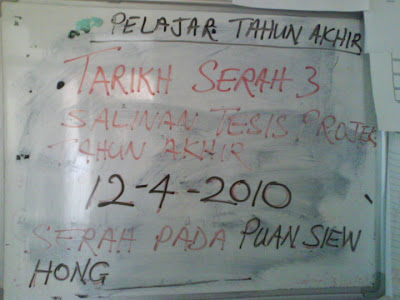 PELAJAR TAHUN AKHIR
• TARIKH SERAH 3
SALINAN TESIS PROJEK
TAHUN AKHIR
12-4-2010
SERAH PADA PUAN SIEW
HONG